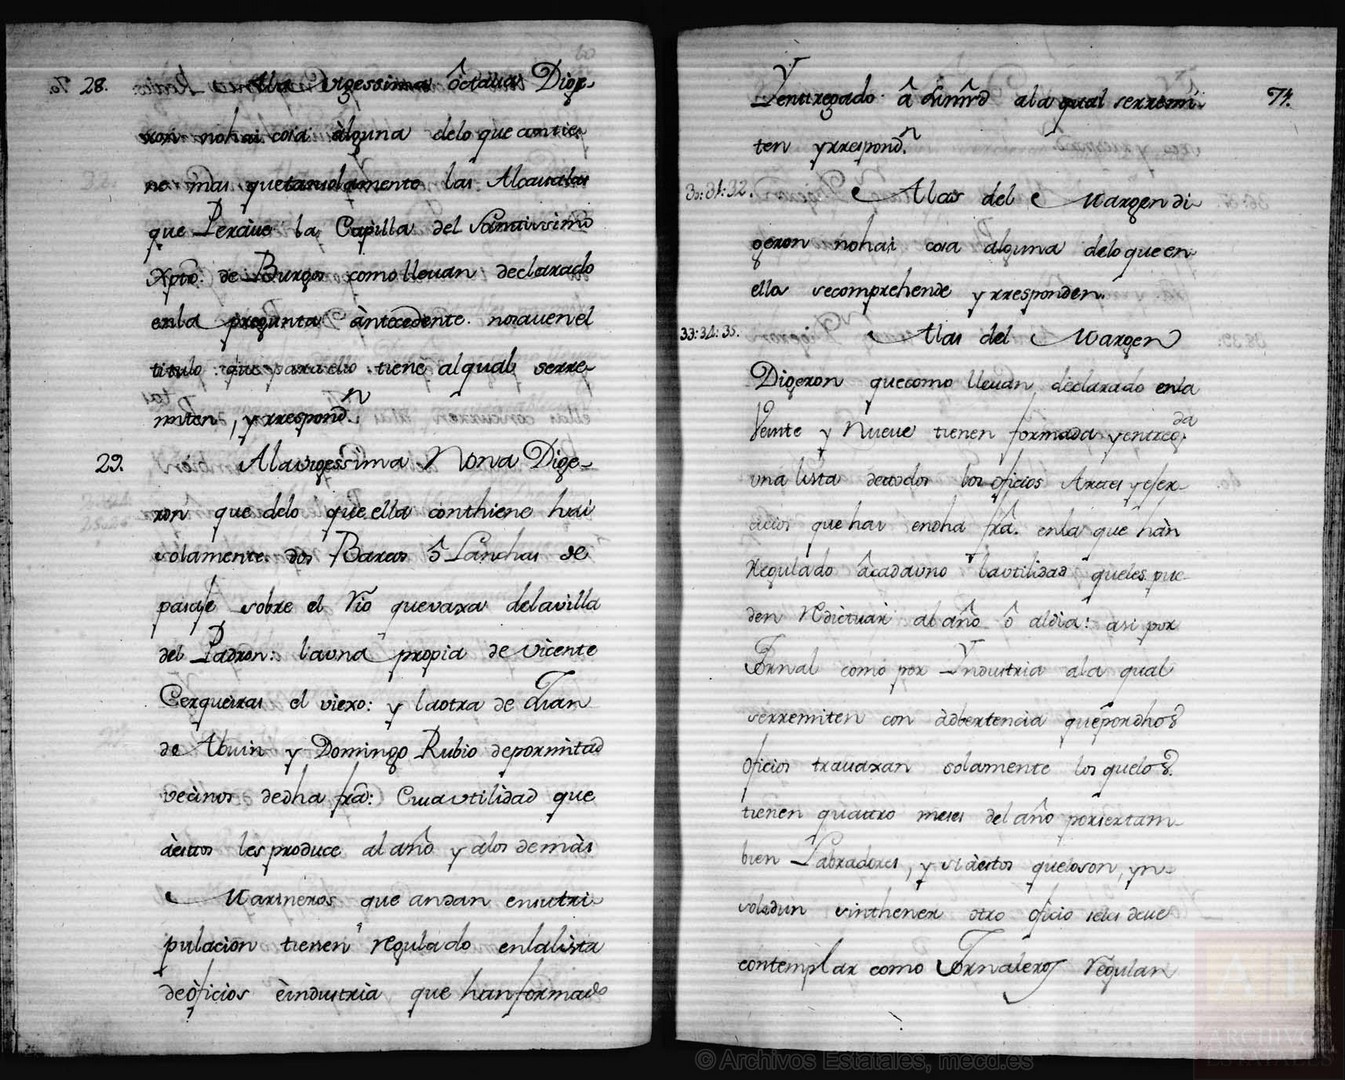 28. Ala Vigessima ôctaua Dige-
ron nohai cosa àlguna delo que contie-
ne mas quetansolamente las Alcaualas
que Perciue la Capilla del Santissimo
Xpto. de Burgos como lleuan declarado
enla pregunta àntecedente. nosauen el
titulo : que para ello tiene alqual serre-
miten, yrrespondn
29. Alavigessima Nona Dige-
ron que delo que ella conthiene hai
solamente dos Barcas ô Lanchas de
pasaje sobre el Rio quevaxa delavilla
del Padron: launa propia de Vicente
Cerqueiras el viexo: y laotra de Juan
de Abuin y Domingo Rubio depormitad
vecinos dedha fra: Cuiautilidad que
àestos les produce al año y alos demàs
Marineros que andan ensutri-
pulacion tienen regulado enlalista
deôficios êindustria que hanformado
Yentregado â ala qual serremi-
ten yrrespondn.
74.
30:31:32. Alas del Margen di-
geron nohai cosa alguna delo que en
ella secomprehende yrresponden.
33:34:35. Alas del Margen
Digeron quecomo lleuan declarado enla
Veinte y Nueue tienen formada yentregda
vna lista detodos los oficios Artes yexer-
cicios que hai endha fra. enla que hàn
Regulado âcadauno lautilidad queles pue-
den redictuar al año ô aldia: asi por
Jornal como por Yndustria ala qual
serremiten con àdbertencia quepordhos
oficios trauaxan solamente los quelos
tienen quattro meses del año porsertam-
bien Labradores, y siàestos quelo son, yn-
sinthener otro oficio seles deue
contemplar como Jornaleros Regulan
© Archivos Estatales, mecd.es
ARCHIVOS
ESTATALES